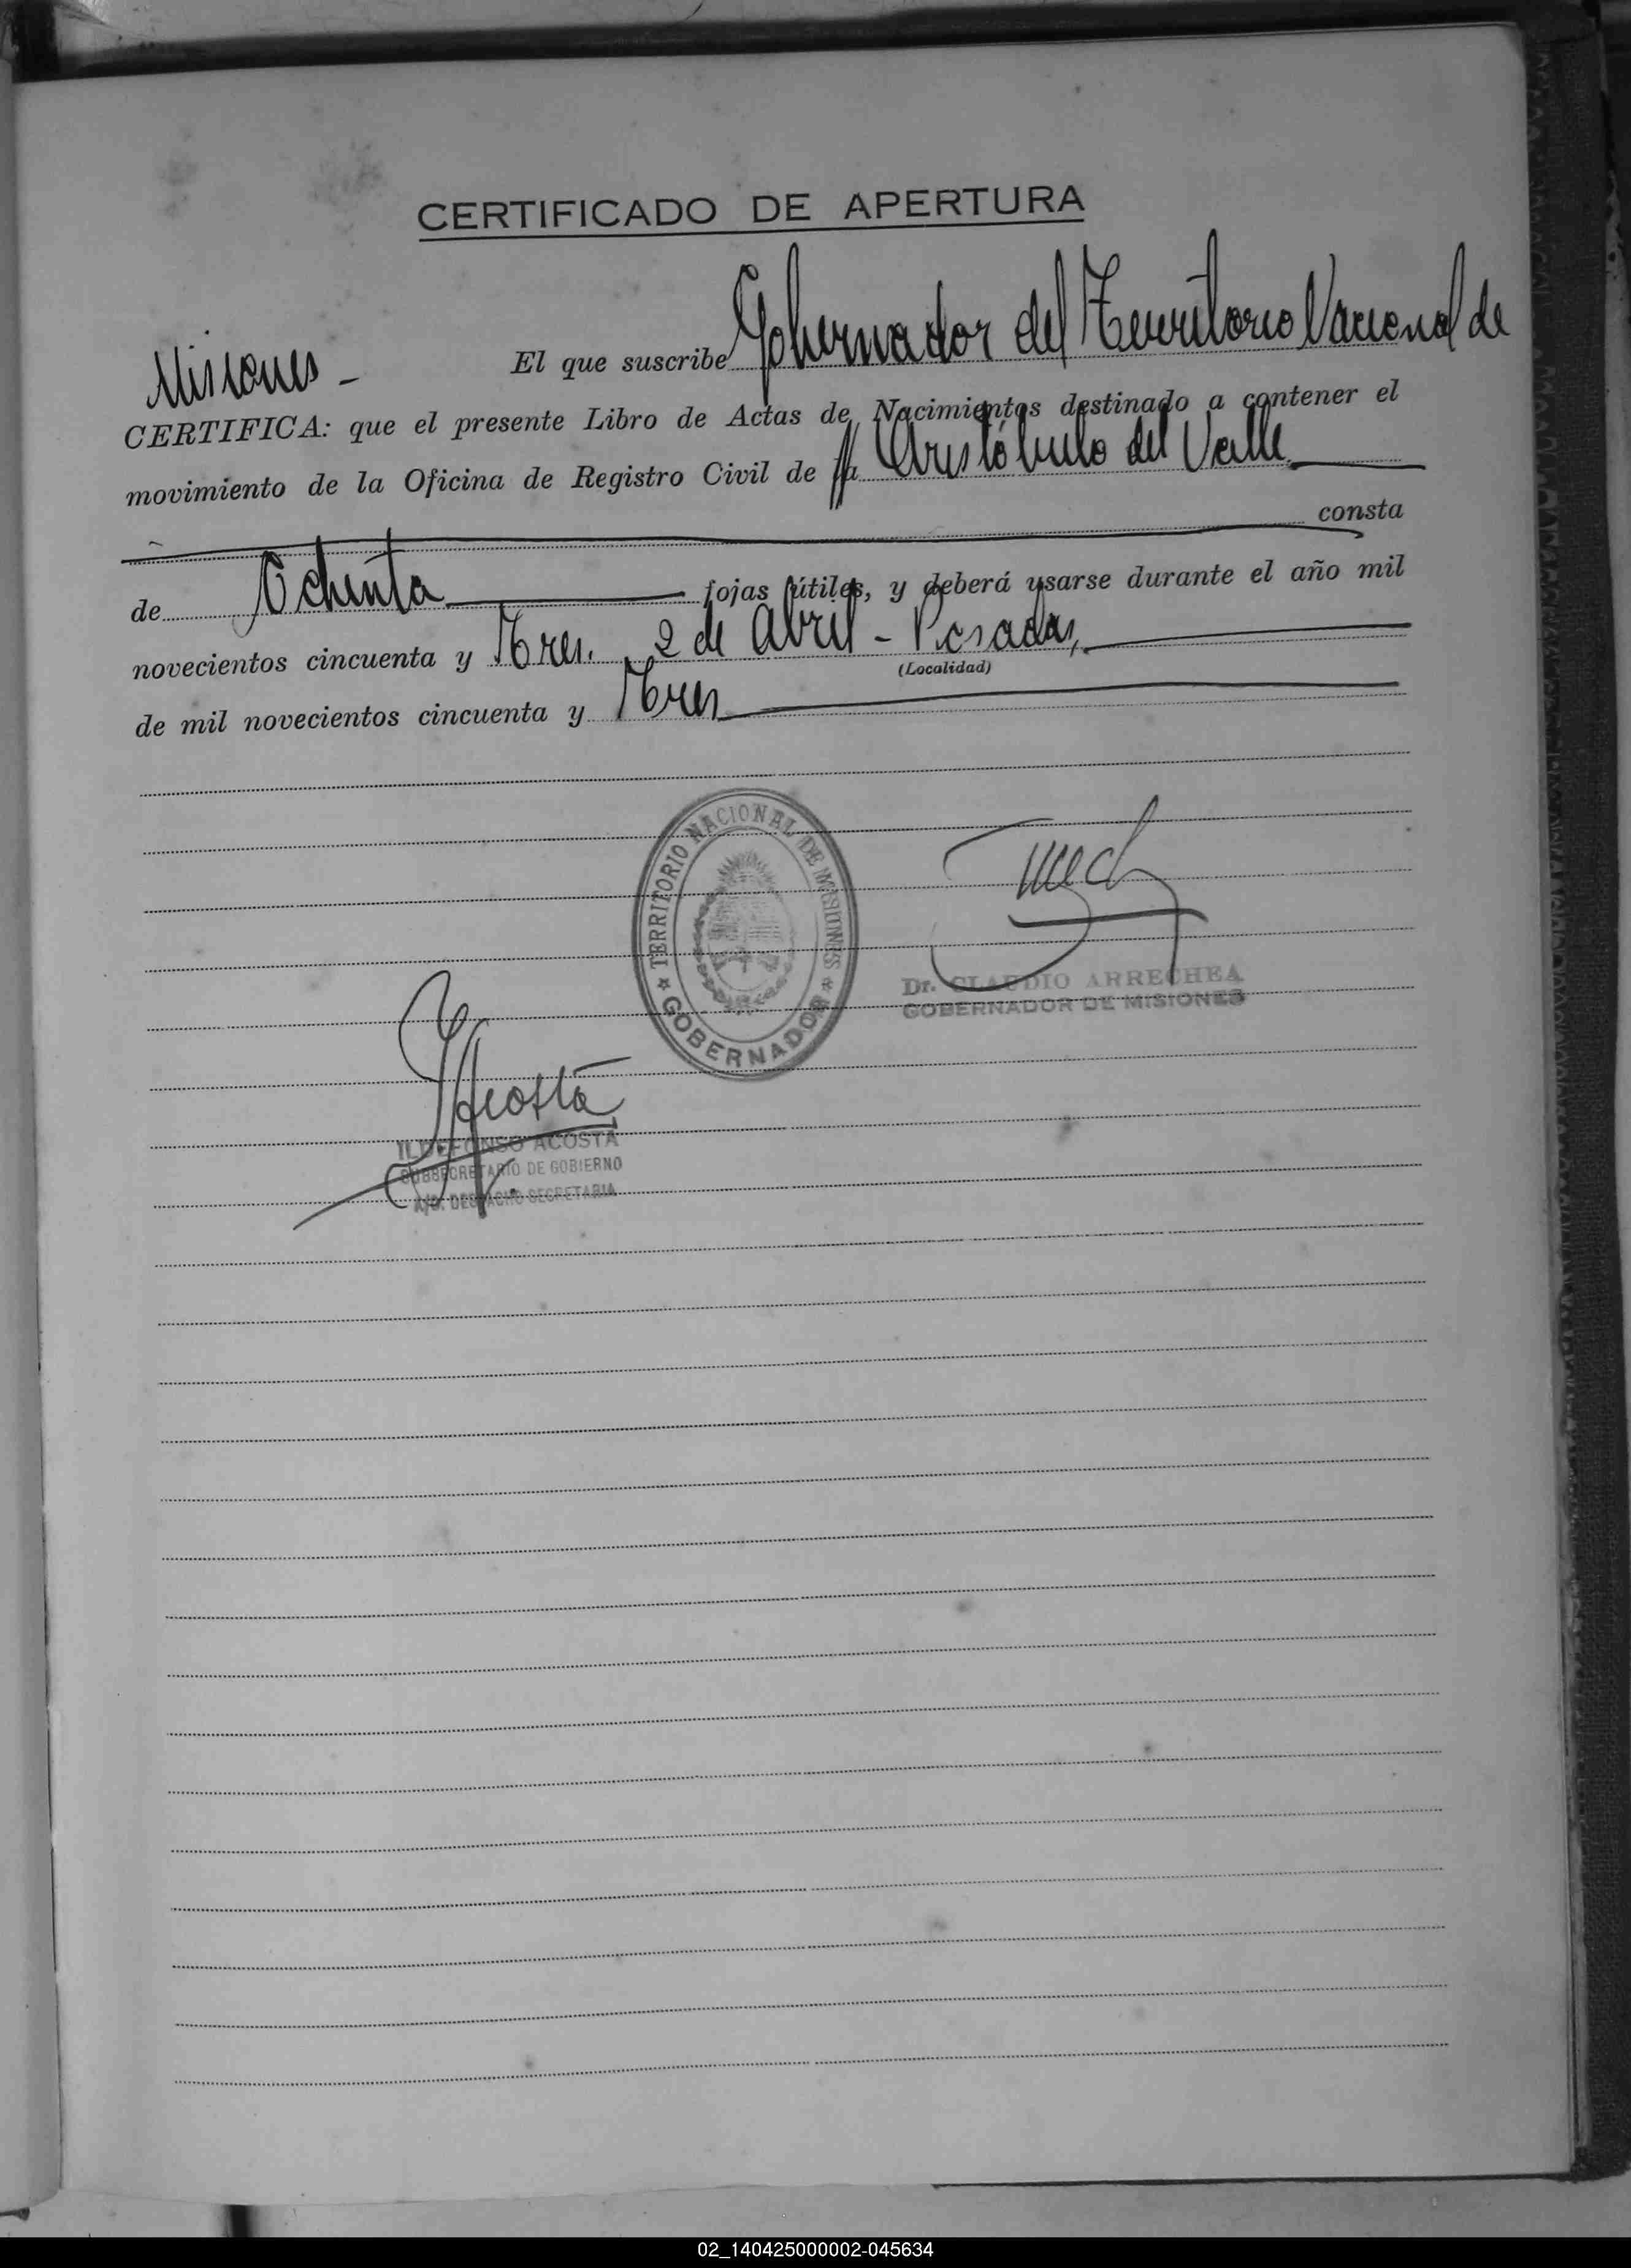 CERTIFICADO DE APERTURA
El que suscribe Gobernador del Territorio Nacional de
Misiones -
CERTIFICA: que el presente Libro de Actas de Nacimientos destinado a contener el
movimiento de la Oficina de Registro Civil de Aristóbulo del Valle
consta
de Ochenta fojas útiles, y deberá usarse durante el año mil
novecientos cincuenta y Tres. 2 de Abril - Posadas,
(Localidad)
de mil novecientos cincuenta y Tres
TERRITORIO NACIONAL DE MISIONES
GOBERNADOR
Dr. CLAUDIO ARRECHEA
GOBERNADOR DE MISIONES
Acosta
ILDEFONSO ACOSTA
SUBSECRETARIO DE GOBIERNO
A/C. DESPACHO SECRETARIA
02_140425000002-045634